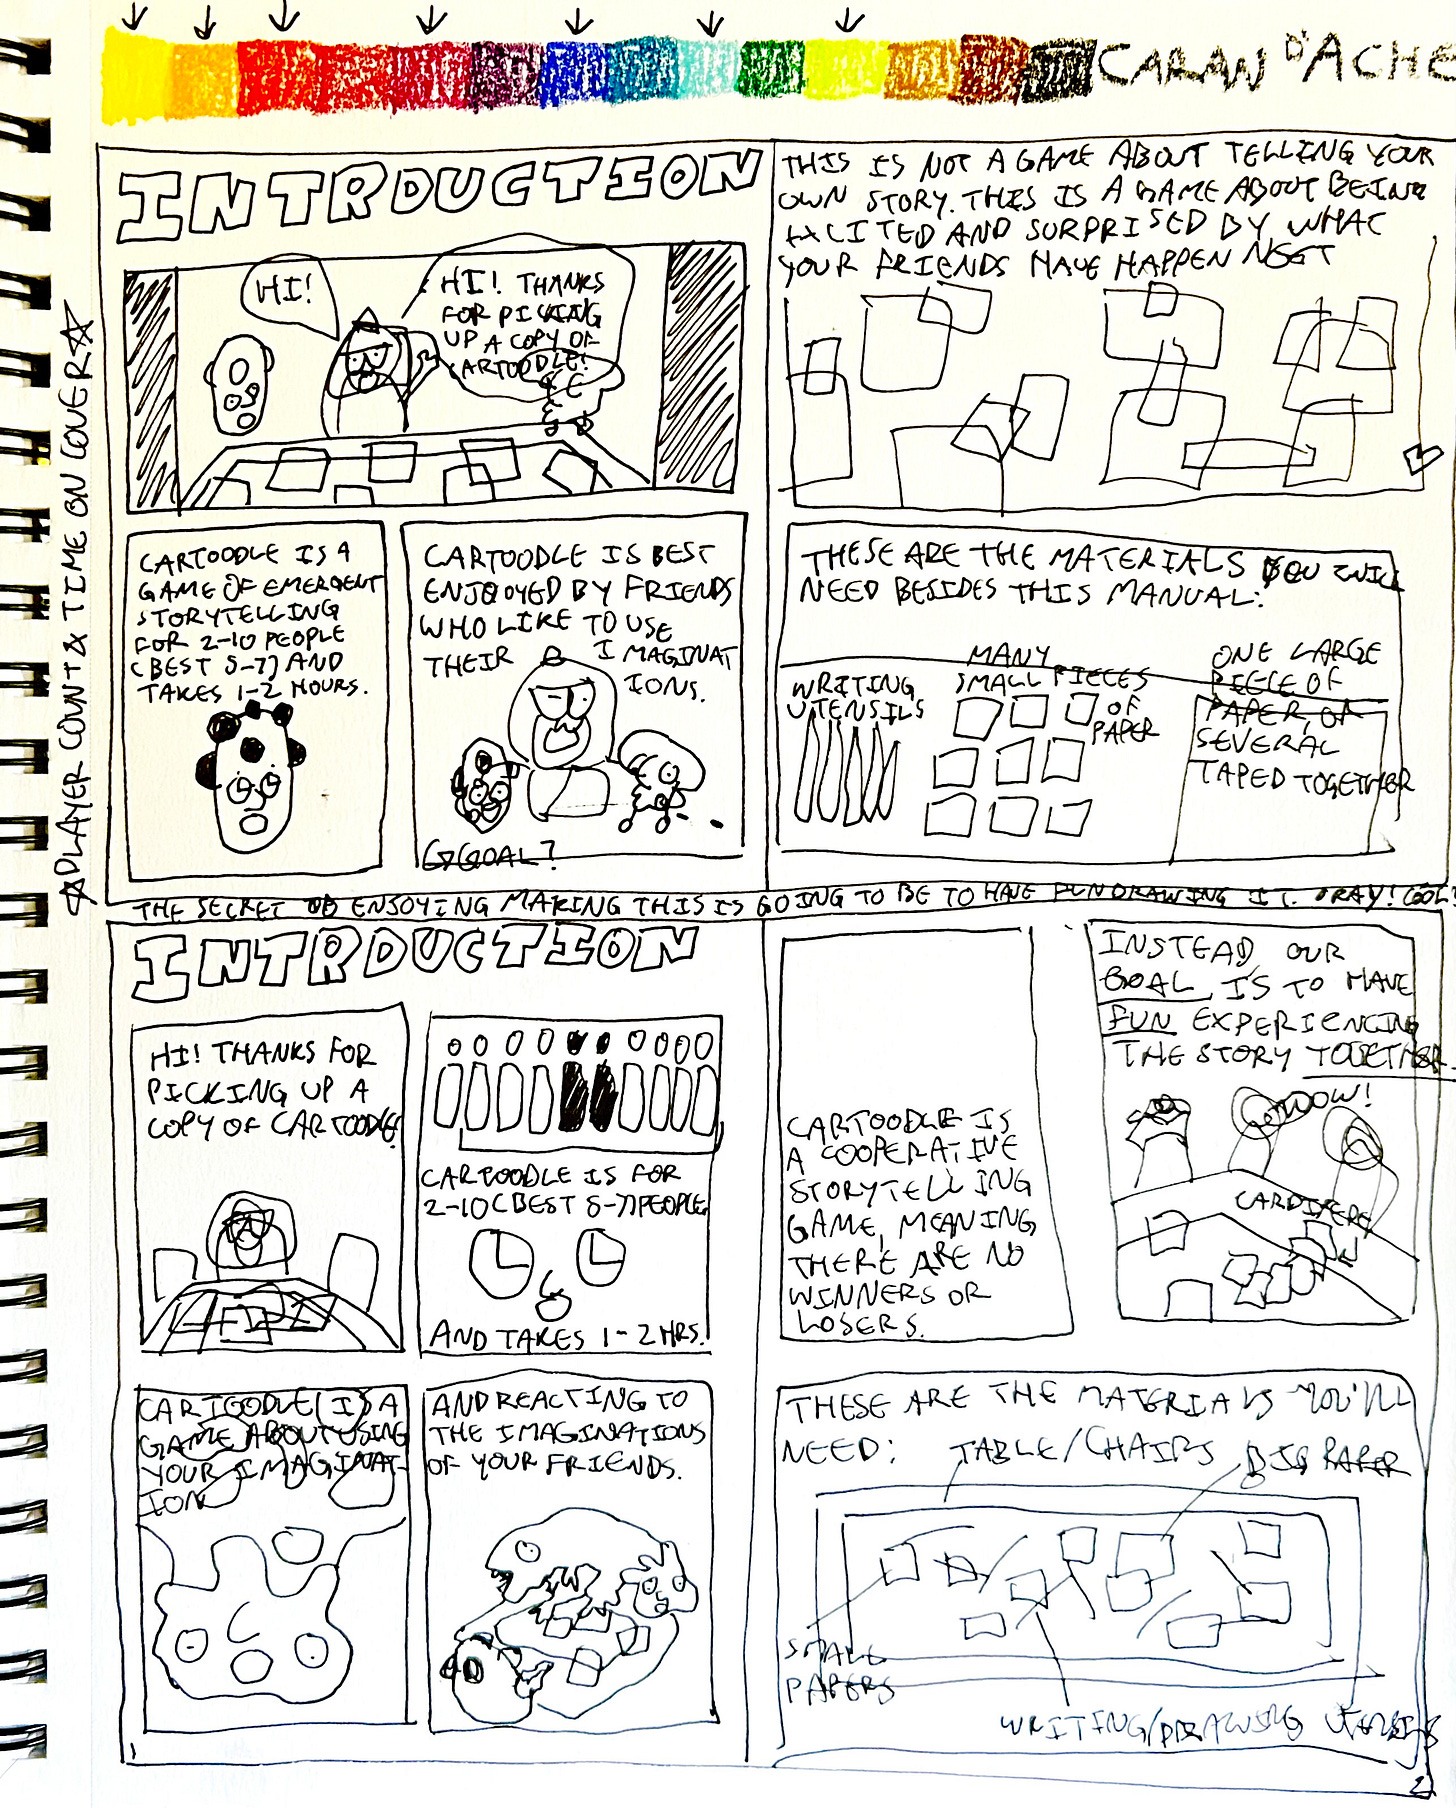 CARAN D'ACHE
INTRDUCTION
HI!
HI! THANKS
FOR PICKING
UP A COPY OF
CARTOODLE!
CARTOODLE IS A
GAME OF EMERGENT
STORYTELLING
FOR 2-10 PEOPLE
(BEST 5-7) AND
TAKES 1-2 HOURS.
CARTOODLE IS BEST
ENJOYED BY FRIENDS
WHO LIKE TO USE
THEIR IMAGINAT
IONS.
GOAL?
THIS IS NOT A GAME ABOUT TELLING YOUR
OWN STORY. THIS IS A GAME ABOUT BEING
EXCITED AND SURPRISED BY WHAT
YOUR FRIENDS HAVE HAPPEN NEXT
THESE ARE THE MATERIALS YOU WILL
NEED BESIDES THIS MANUAL:
WRITING
UTENSILS
MANY
SMALL PIECES
OF
PAPER
ONE LARGE
PIECE OF
PAPER, OR
SEVERAL
TAPED TOGETHER
☆PLAYER COUNT & TIME ON COVER☆
THE SECRET TO ENJOYING MAKING THIS IS GOING TO BE TO HAVE FUN DRAWING IT. YAY! COOL!
INTRDUCTION
HI! THANKS FOR
PICKING UP A
COPY OF CARTOODLE!
CARTOODLE IS FOR
2-10 (BEST 5-7) PEOPLE
AND TAKES 1-2 HRS.
CARTOODLE IS A
GAME ABOUT USING
YOUR IMAGINAT-
ION
AND REACTING TO
THE IMAGINATIONS
OF YOUR FRIENDS.
1
CARTOODLE IS
A COOPERATIVE
STORYTELLING
GAME, MEANING
THERE ARE NO
WINNERS OR
LOSERS.
INSTEAD OUR
GOAL IS TO HAVE
FUN EXPERIENCING
THE STORY TOGETHER.
WOW!
THESE ARE THE MATERIALS YOU'LL
NEED: TABLE/CHAIRS BIG PAPER
SMALL
PAPERS
WRITING/DRAWING UTENSILS
2